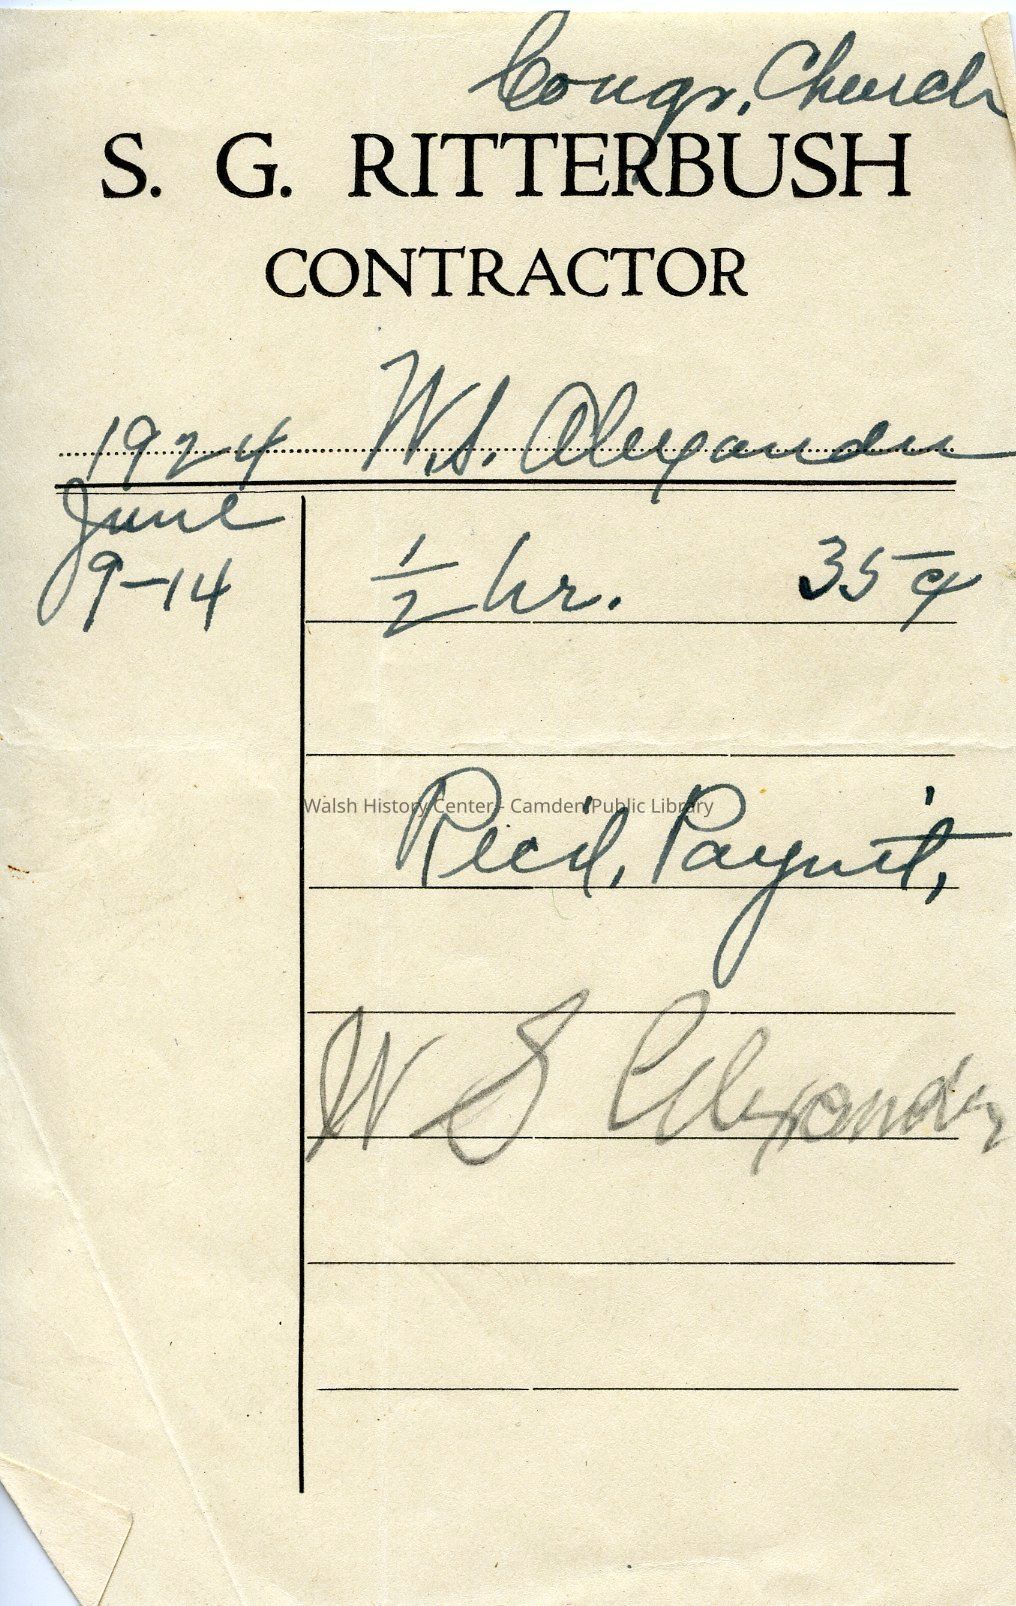 Congr. Church
S. G. RITTERBUSH
CONTRACTOR
1924 W.S. Alexander
June
9-14 1/2 hr. 35¢
Walsh History Center - Camden Public Library
Rec'd, Paym't,
W S Alexander